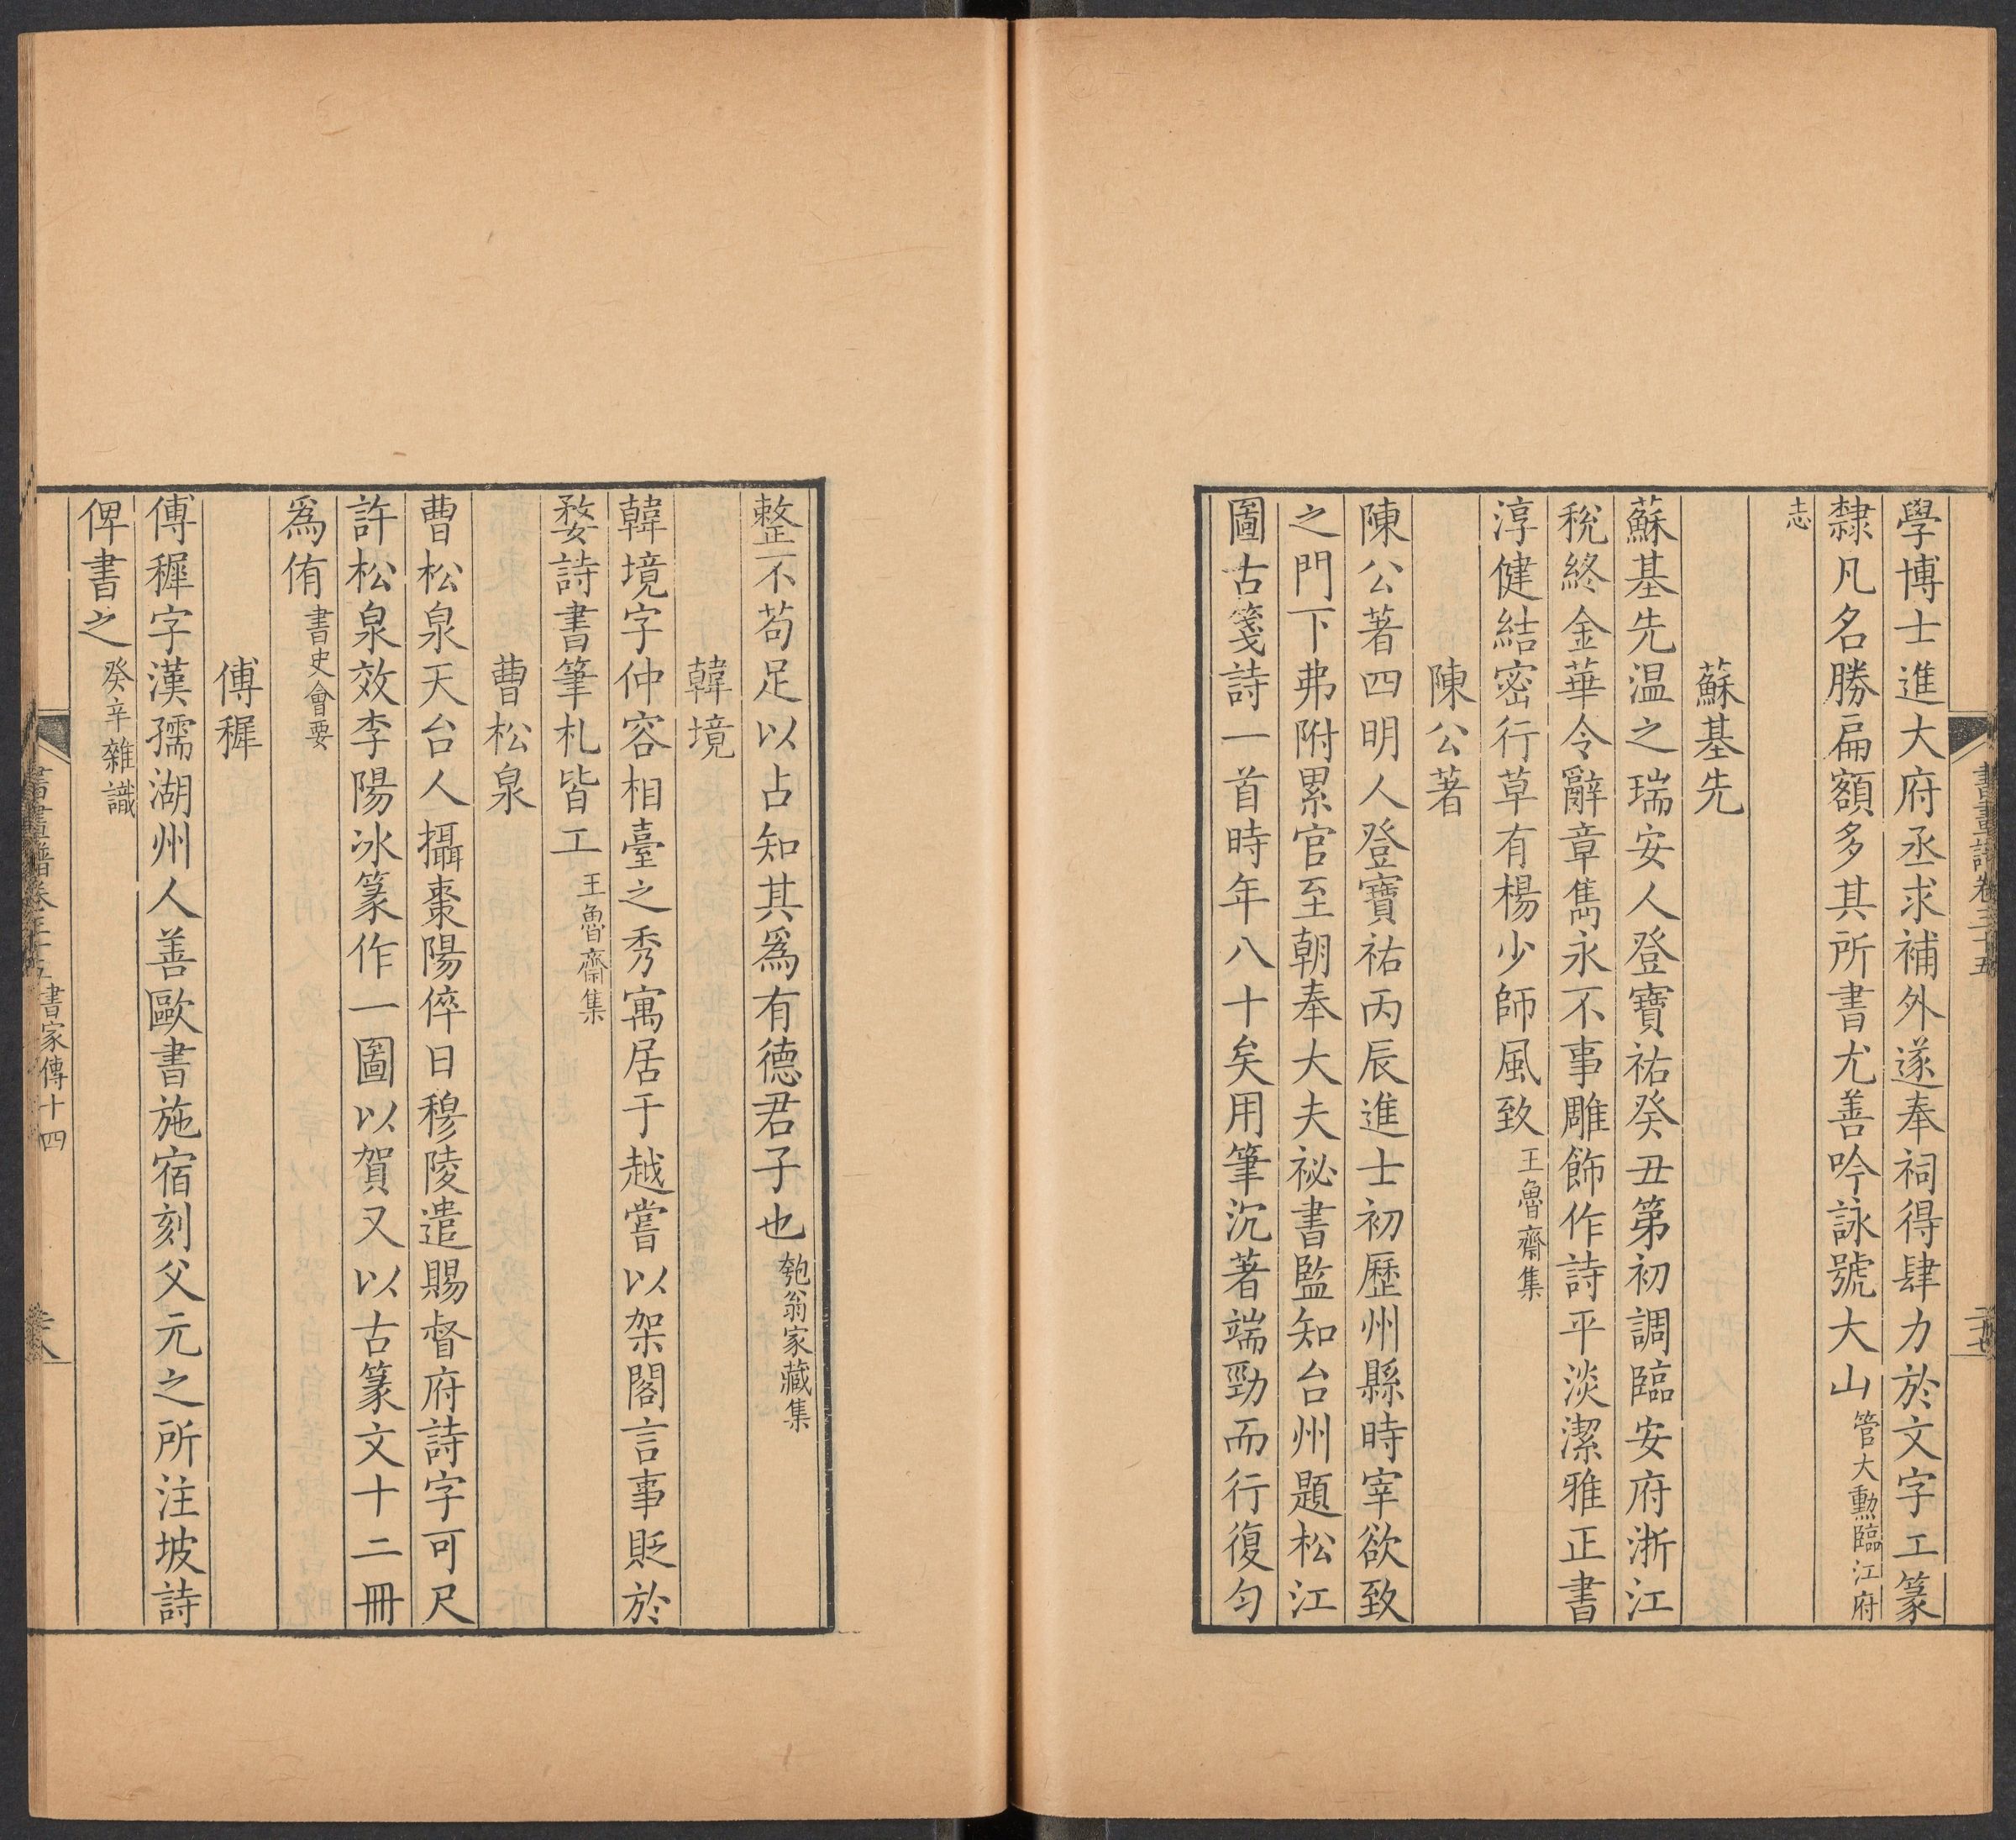 書畫譜卷三十五
學博士進大府丞求補外遂奉祠得肆力於文字工篆
隸凡名勝扁額多其所書尤善吟詠號大山管大勲臨江府
志
蘇基先
蘇基先温之瑞安人登寶祐癸丑第初調臨安府浙江
稅終金華令辭章雋永不事雕飾作詩平淡潔雅正書
淳健結密行草有楊少師風致王魯齋集
陳公著
陳公著四明人登寶祐丙辰進士初歷州縣時宰欲致
之門下弗附累官至朝奉大夫祕書監知台州題松江
圖古箋詩一首時年八十矣用筆沉著端勁而行復勻
整不苟足以占知其爲有德君子也匏翁家藏集
韓境
韓境字仲容相臺之秀寓居于越嘗以架閣言事貶於
婺詩書筆札皆工王魯齋集
曹松泉
曹松泉天台人攝棗陽倅日穆陵遣賜督府詩字可尺
許松泉效李陽冰篆作一圖以賀又以古篆文十二冊
爲侑書史會要
傅穉
傅穉字漢孺湖州人善歐書施宿刻父元之所注坡詩
俾書之癸辛雜識
書畫譜卷三十五書家傳十四